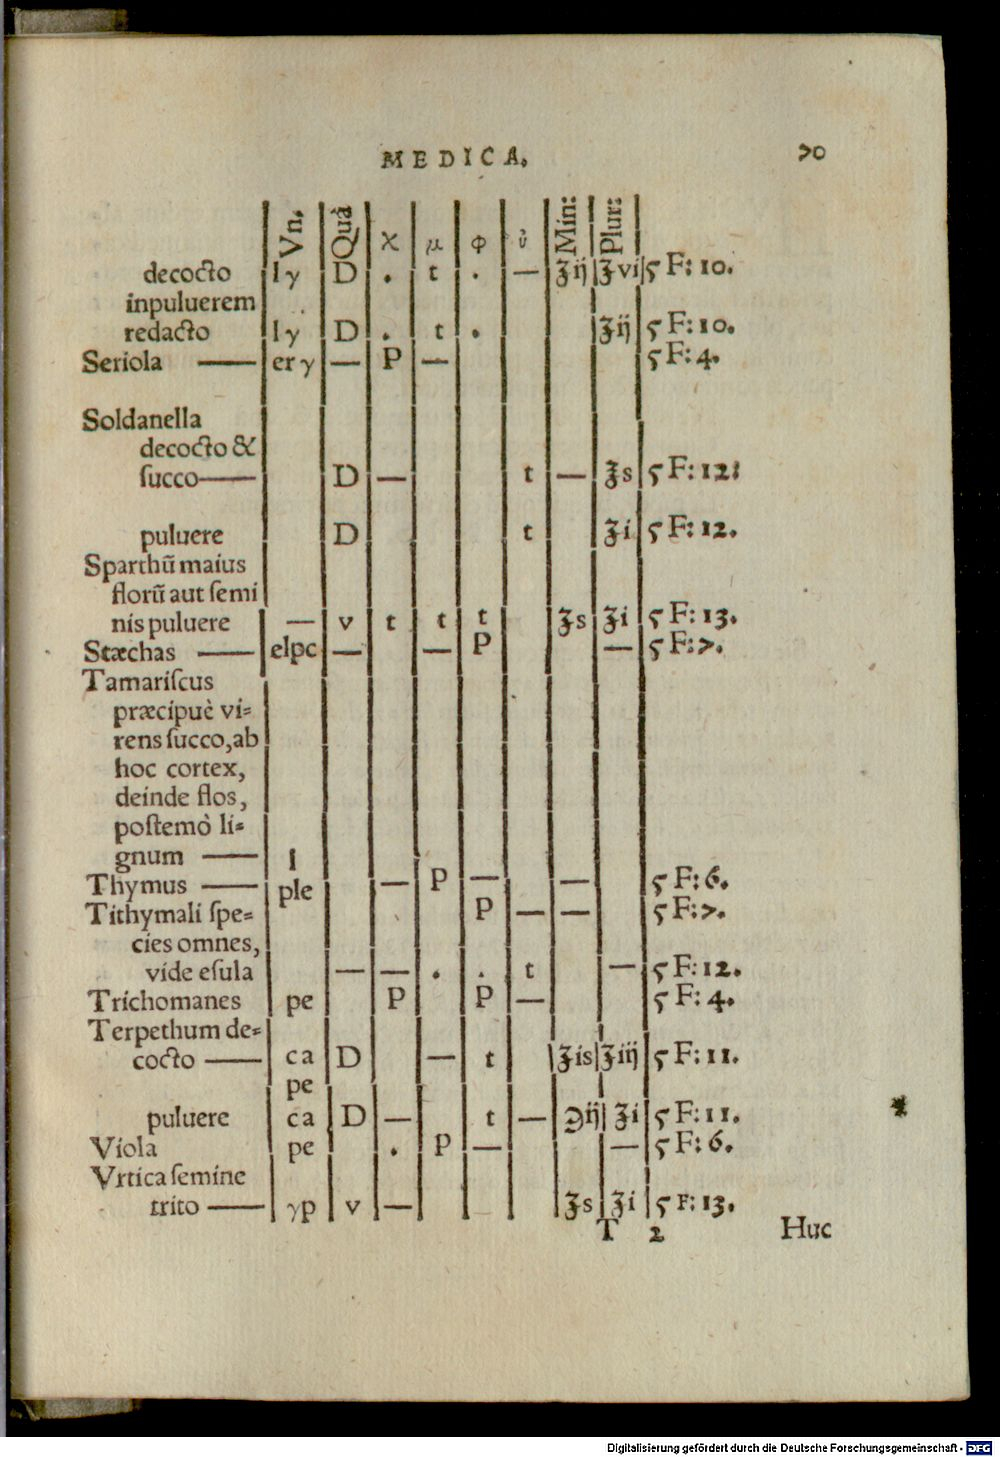 MEDICA. 70
Vn. Quã χ μ φ ὑ Min: Plur:
decocto lγ D . t . — ʒij ʒvi ς F: 10.
inpuluerem
redacto lγ D . t . ʒij ς F: 10.
Seriola — erγ — P — ς F: 4.
Soldanella
decocto &
ſucco— D — t — ʒs ς F: 12:
puluere D t ʒi ς F: 12.
Sparthũ maius
florũ aut ſemi
nis puluere — v t t t ʒs ʒi ς F: 13.
Stæchas — elpc — — P — ς F: 7.
Tamariſcus
præcipuè vi⸗
rens ſucco, ab
hoc cortex,
deinde flos,
poſtemò li⸗
gnum — l
Thymus — ple — P — — ς F: 6.
Tithymali ſpe⸗ P — — ς F: 7.
cies omnes,
vide eſula — — . . t — ς F: 12.
Trichomanes pe P P — ς F: 4.
Terpethum de⸗
cocto — ca D — t ʒis ʒiij ς F: 11.
pe
puluere ca D — t — ℈ij ʒi ς F: 11.
Viola pe . P — — ς F: 6.
Vrtica ſemine
trito — γp v — ʒs ʒi ς F: 13.
T 2 Huc
Digitalisierung gefördert durch die Deutsche Forschungsgemeinschaft - DFG